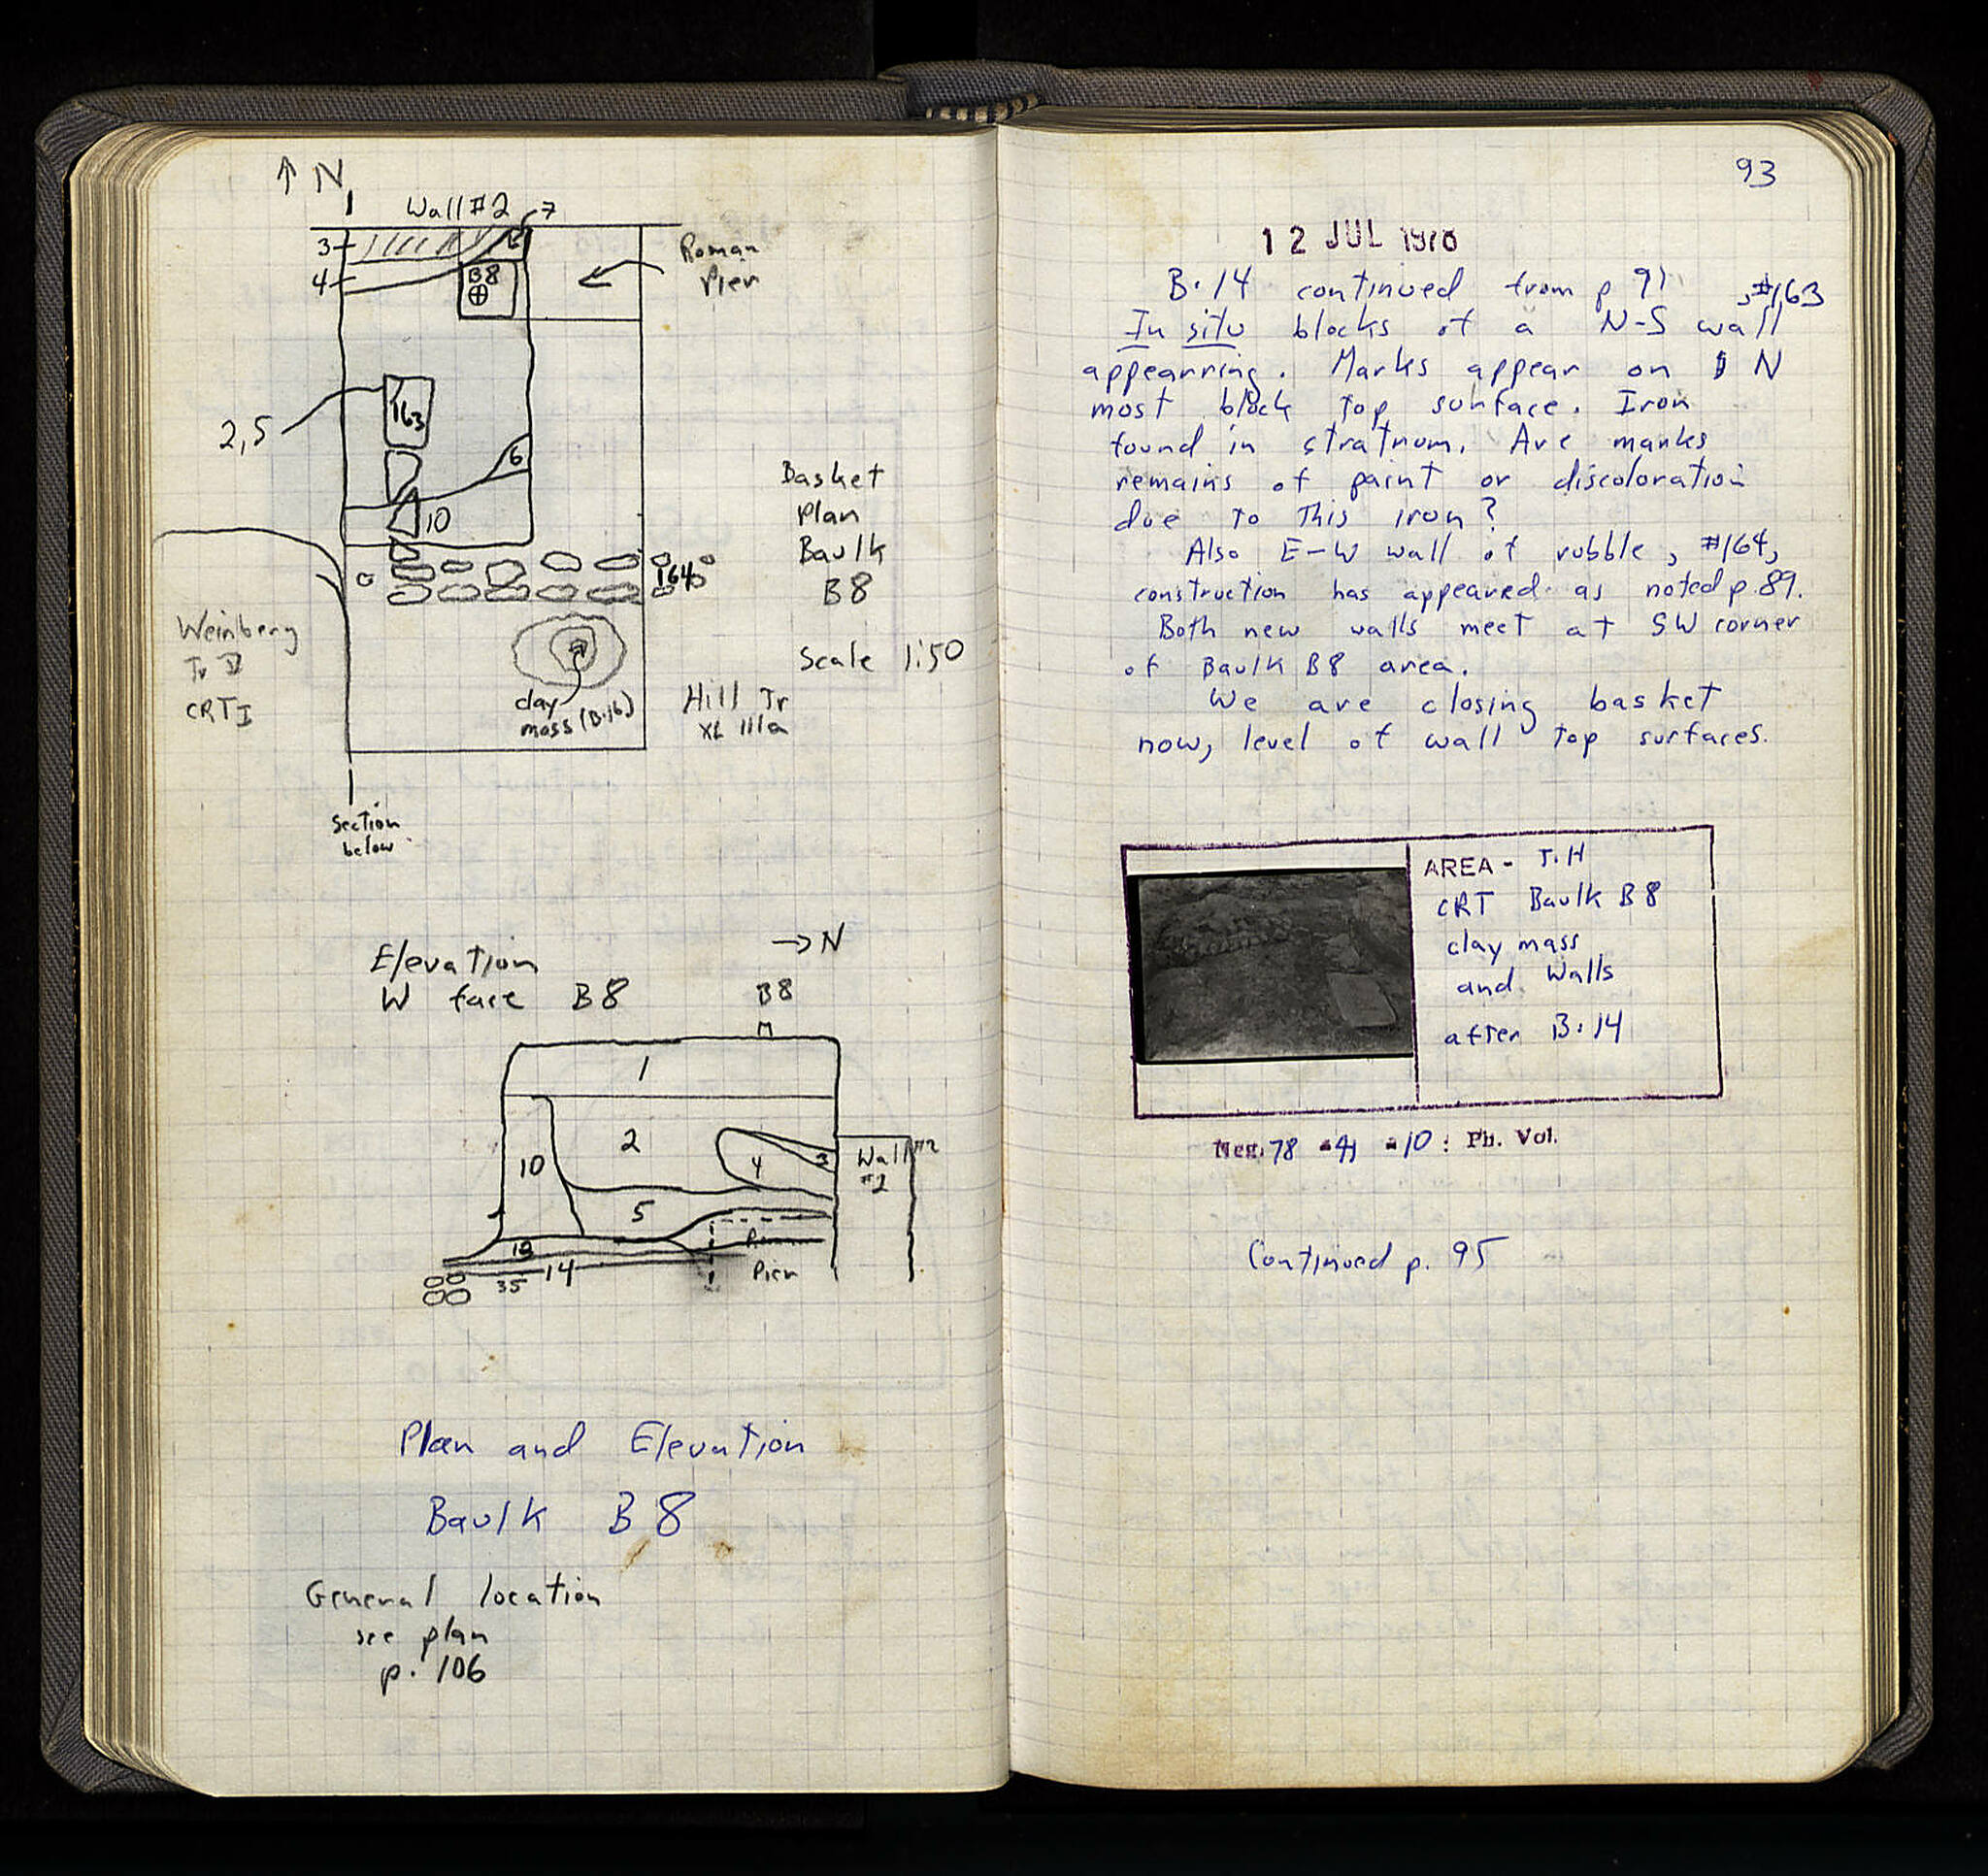 ↑ N
Wall #2
7
3
4
B8
Roman
Pier
2,5
163
6
10
Basket
Plan
Baulk
B8
164
Weinberg
Tr
CRT I
Scale 1:50
clay
mass (B.16)
Hill Tr
XL IIIa
Section
below
Elevation
→ N
W face B8
B8
1
2
10
4
3
Wall #2
#2
5
Pier
14
35
Plan and Elevation
Baulk B8
General location
see plan
p. 106
93
12 JUL 1978
B.14 continued from p 91
, #163
In situ blocks of a N-S wall
appearring. Marks appear on N
most block top surface. Iron
found in stratnum. Are marks
remains of paint or discoloration
due to this iron?
Also E-W wall of rubble, #164,
construction has appeared as noted p. 89.
Both new walls meet at SW corner
of Baulk B8 area.
We are closing basket
now, level of wall top surfaces.
AREA - T.H
CRT Baulk B8
clay mass
and Walls
after B:14
Neg. 78 - 41 - 10 : Ph. Vol.
Continued p. 95